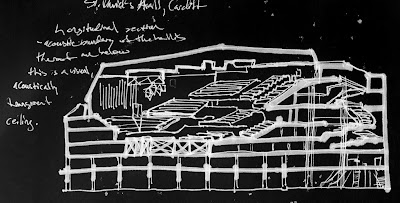 St. David's Hall, Cardiff
Longitudinal section
- acoustic boundary of the hall is
the roof and below
this is a visual,
acoustically
transparent
ceiling.